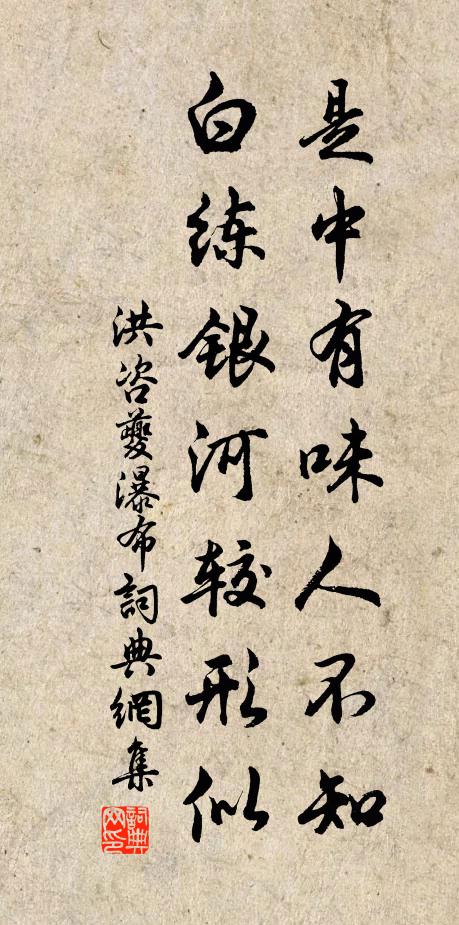 是中有味人不知
白练银河较形似
洪咨夔瀑布詞典網集
詞典网印